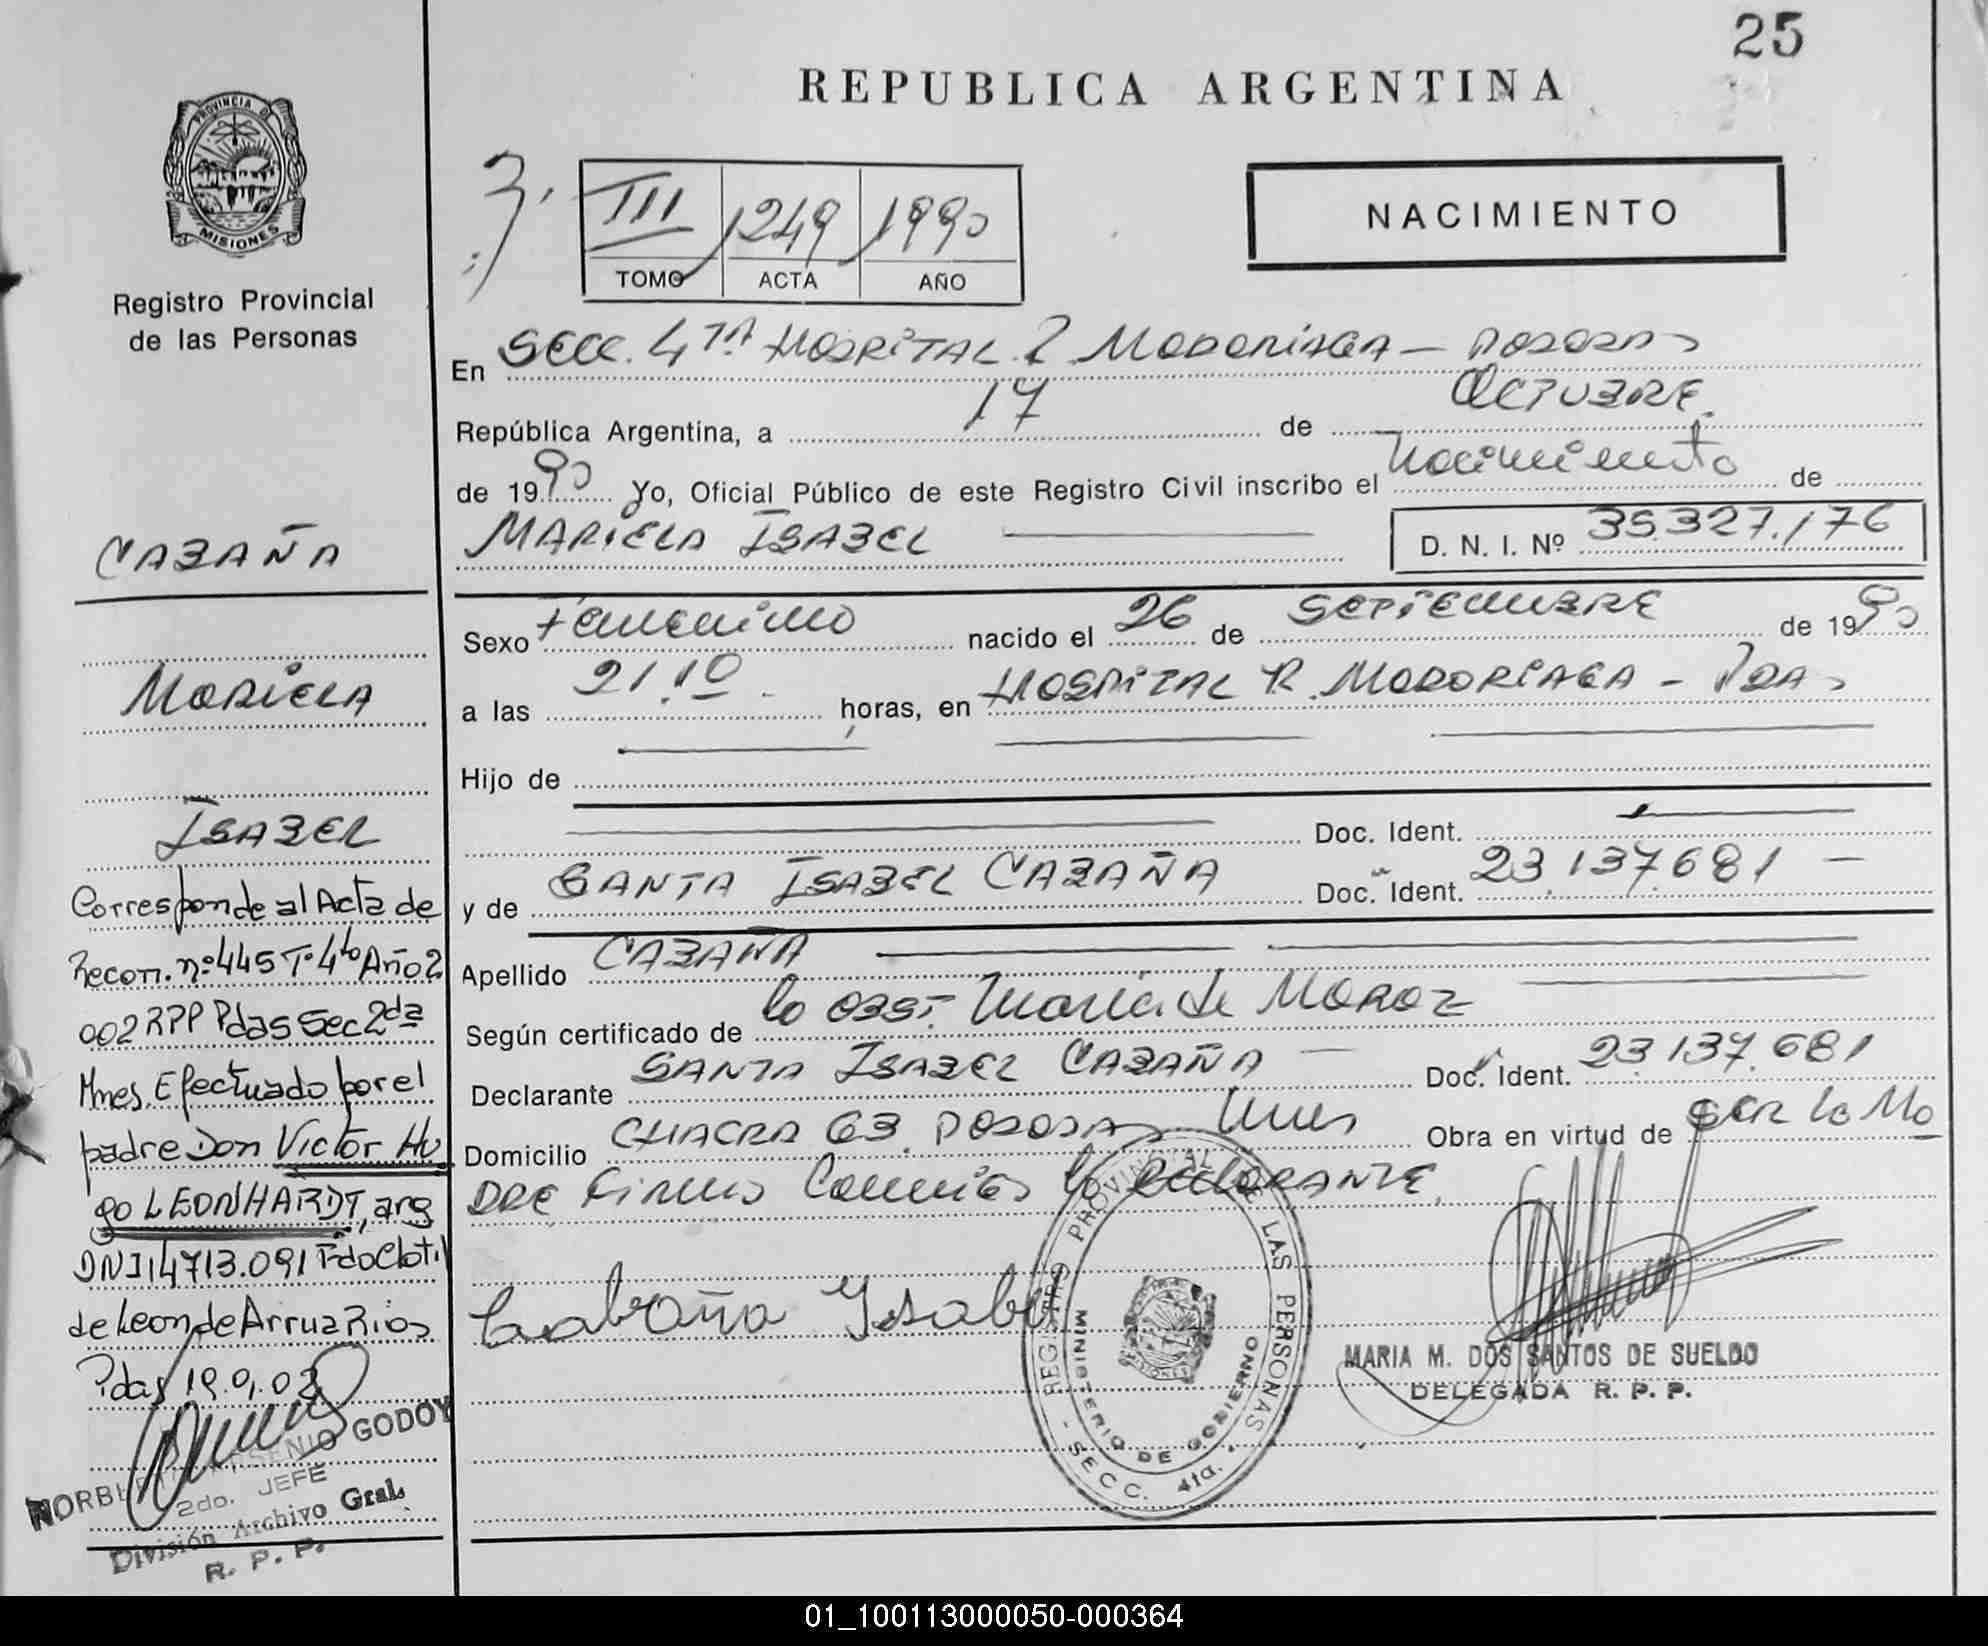 25
REPUBLICA ARGENTINA
PROVINCIA D
MISIONES
Registro Provincial
de las Personas
III 1249 1990
TOMO ACTA AÑO
NACIMIENTO
En SECC. 4TA HOSPITAL R MADARIAGA - POSADAS
República Argentina, a 17 de OCTUBRE
de 1990 Yo, Oficial Público de este Registro Civil inscribo el Nacimiento de
MARIELA ISABEL D. N. I. Nº 35.327.176
Sexo Femenino nacido el 26 de SEPTIEMBRE de 1990
a las 21.10 horas, en HOSPITAL R. MADARIAGA - PDAS
Hijo de
Doc. Ident.
y de SANTA ISABEL CABAÑA Doc. Ident. 23.137.681 -
Apellido CABAÑA
Según certificado de la OBST. Maria de MOROZ
Declarante SANTA ISABEL CABAÑA - Doc. Ident. 23.137.681
Domicilio CHACRA 63 POSADAS Mnes Obra en virtud de SER la MA
DRE Firma Conmigo la DECLARANTE.
Cabaña Ysabel
REGISTRO PROVINCIAL DE LAS PERSONAS
MINISTERIO DE GOBIERNO
- SECC. 4ta. -
MISIONES
MARIA M. DOS SANTOS DE SUELDO
DELEGADA R. P. P.
CABAÑA
MARIELA
ISABEL
Corresponde al Acta de
Recon. nº 445 Tº 4to Año 2
002 RPP Pdas Sec 2da
Mnes. Efectuado por el
padre Don Victor Hu
go LEONHARDT, arg
DNI 14713.091 Fdo Cloti
de Leon de Arrua Rios
Pdas 19.9.02
NORBERTO ARSENIO GODOY
2do. JEFE
División Archivo Gral.
R. P. P.
01_100113000050-000364